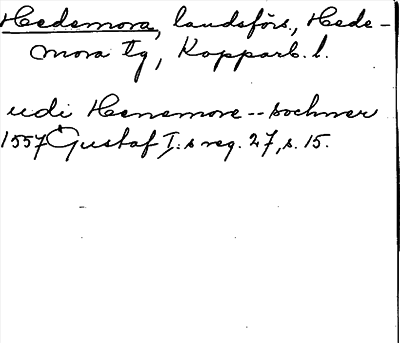 Hedemora, landsförs., Hede-
mora tg, Kopparb. l.
udi Hensmore -- sochner
1557 Gustaf I:s reg. 27, s. 15.